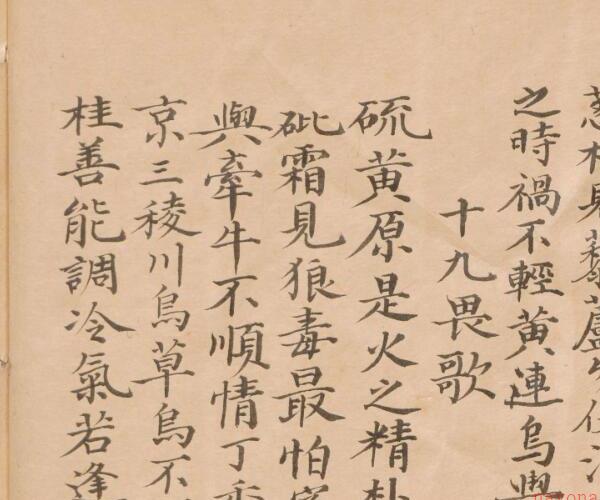 藜蘆
之時禍不輕黄連烏與
十九畏歌
硫黄原是火之精朴
砒霜見狼毒最怕密
與牽牛不順情丁香
京三稜川烏草烏不
桂善能調冷氣若逢